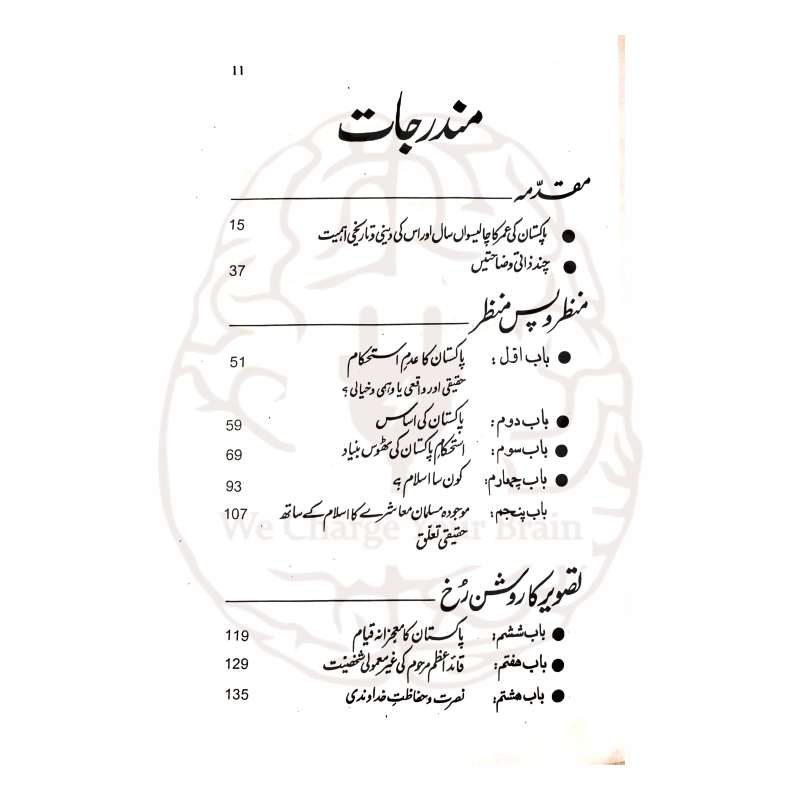 11
مندرجات
مقدّمہ
پاکستان کی عمر کا چالیسواں سال اور اس کی دینی و تاریخی اہمیت 15
چند ذاتی وضاحتیں 37
منظر و پس منظر
باب اوّل : پاکستان کا عدمِ استحکام 51
حقیقی اور واقعی یا وہمی و خیالی ؟
باب دوم : پاکستان کی اساس 59
باب سوم : استحکامِ پاکستان کی ٹھوس بنیاد 69
باب چہارم : کون سا اسلام ؟ 93
باب پنجم : موجودہ مسلمان معاشرے کا اسلام کے ساتھ 107
حقیقی تعلّق
We Charge Your Brain
تصویر کا روشن رُخ
باب ششم : پاکستان کا معجزانہ قیام 119
باب ہفتم : قائد اعظم مرحوم کی غیر معمولی شخصیّت 129
باب ہشتم : نصرت و حفاظتِ خداوندی 135